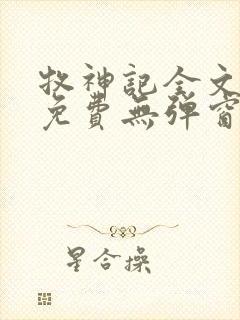 牧神記全文
免費無彈窗
星合操